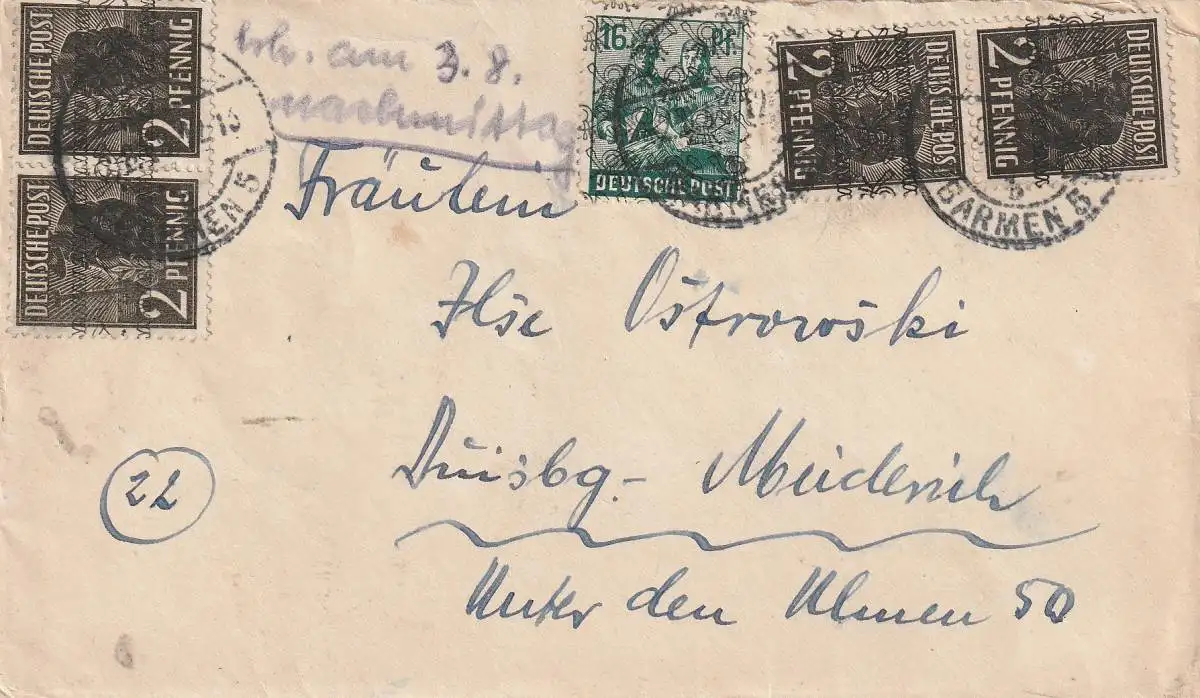 DEUTSCHE POST
2 PFENNIG
DEUTSCHE POST
2 PFENNIG
erh. am 3. 8.
nachmittag
16 Pf.
DEUTSCHE POST
2 PFENNIG
DEUTSCHE POST
2 PFENNIG
DEUTSCHE POST
MEN 5
BARMEN 5
Fräulein
Ilse Ostrowski
Duisbg.- Meiderich
22
Unter den Ulmen 50